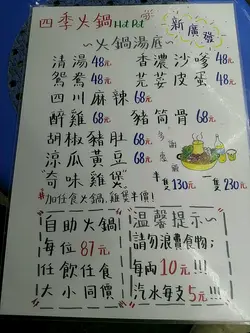 四季火鍋 Hot Pot 新廣發
~火鍋湯底~
清湯48元 香濃沙嗲48元
鴛鴦48元 芫荽皮蛋48元
四川麻辣68元
醉雞68元 豬筒骨68元
胡椒豬肚68元
涼瓜黃豆68元
多謝惠顧
"奇味雞煲" 半隻130元 一隻230元
#加任食火鍋,雞煲半價!
自助火鍋
每位87元
任飲任食
大小同價
溫馨提示~
請勿浪費食物;
每両10元!!!
汽水每支5元!!!